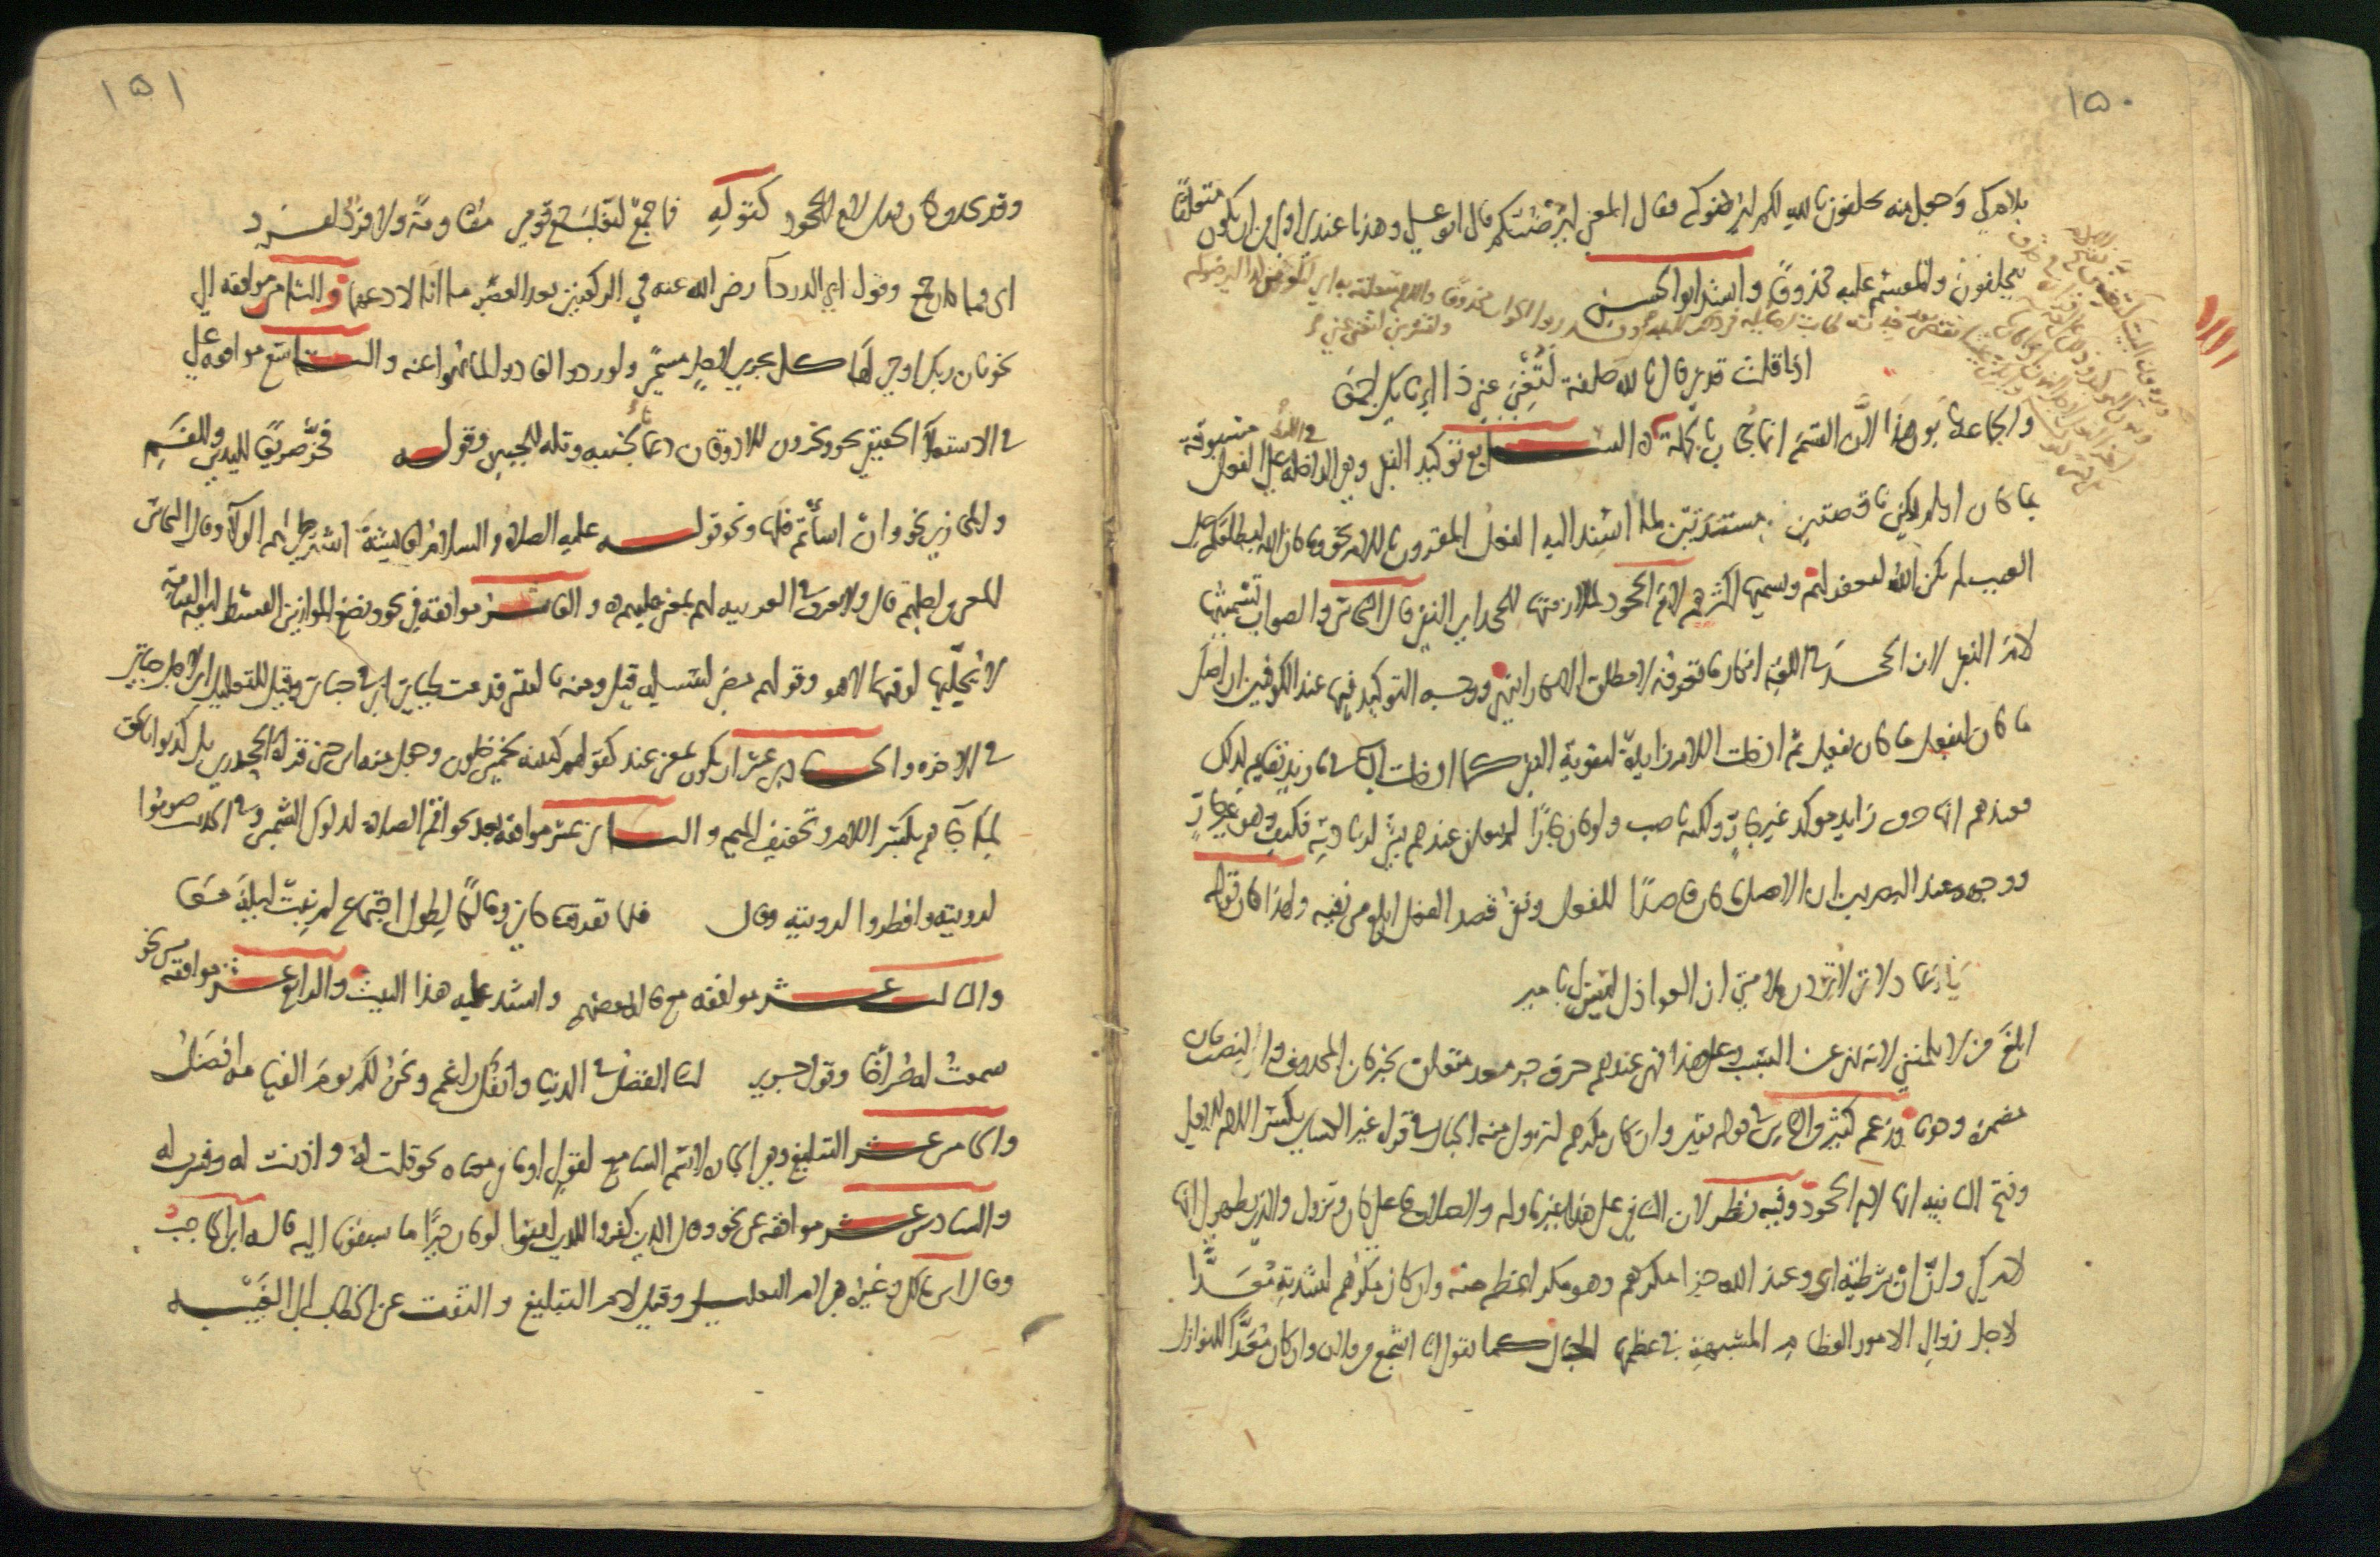 ١٥٠
بلام كي وجعل منه يحلفون بالله لكم ليرضوكم فقال المعنى ليرضنكم قال ابو علي وهذا عندي اولى من ان يكون متعلقا
بيحلفون والمقسم عليه محذوف وانشد ابو الحسن
اذا قلت قدني قال بالله حلفة لتغني عني ذا انائك اجمعا
والجماعة يابون هذا لان القسم انما يجاب بالجملة السابع توكيد النفي وهي الداخلة في اللفظ على الفعل مسبوقة
بما كان او لم يكن ناقصتين مسندتين لما اسند اليه الفعل المقرون باللام نحو وما كان الله ليطلعكم على
الغيب لم يكن الله ليغفر لهم ويسميها اكثرهم لام الجحود لملازمتها للجحد اي النفي قال النحاس والصواب تسميتها
لام النفي لان الجحد في اللغة انكار ما تعرفه لا مطلق الانكار انتهى ووجه التوكيد فيها عند الكوفيين ان اصل
ما كان ليفعل ما كان يفعل ثم ادخلت اللام زايدة لتقوية النفي كما ادخلت الباء في ما زيد بقايم لذلك
فعندهم انها حرف زايد موكد غير جار ولكنه ناصب ولو كان جارا لم يتعلق عندهم بشي لزيادته فكيف وهو غير جار
ووجهه عند البصريين ان الاصل ما كان قاصدا للفعل ونفي قصد الفعل ابلغ من نفيه ولهذا كان قوله
يا عاذلاتي لا تردن ملامتي ان العواذل ليس لي بامير
ابلغ من لا تلمنني لانه نهي عن السبب وعلى هذا فهي عندهم حرف جر معد متعلق بخبر كان المحذوف والنصب بان
مضمرة وجوبا وزعم كثير من الناس في قوله تعالى وان كان مكرهم لتزول منه الجبال في قراءة غير الكسائي بكسر اللام الاولى
وفتح الثانية انها لام الجحود وفيه نظر لان النافي على هذا غير ما ولم والختلاف فاعلي كان وتزول والذي يظهر لي انها
لام كي وان ان شرطية اي وعند الله جزا مكرهم وهو مكر اعظم منه وان كان مكرهم لشدته معدا
لاجل زوال الامور العظام المشبهة في عظمها الجبال كما تقول انا اشجع من فلان وان كان معدا للنوازل
١٥١
وقد تحذف كان قبل لام الجحود كقوله فما جمع ليغلب جمع قومي مقاومة ولا فرد لفرد
اي فما كان جمع وقول ابي الدرداء رضي الله عنه في الركعتين بعد العصر ما انا لادعهما والثامن موافقة الى
نحو بان ربك اوحى لها كل يجري لاجل مسمى ولو ردوا لعادوا لما نهوا عنه والتاسع موافقة على
في الاستعلاء الحقيقي نحو ويخرون للاذقان دعانا لجنبه وتله للجبين وقوله فخر صريعا لليدين وللفم
والمجازي نحو وان اسأتم فلها ونحو قوله عليه الصلاة والسلام لعايشة اشترطي لهم الولاء وقال النحاس
المعنى من اجلهم قال ولا نعرف في العربية لهم بمعنى عليهم والعاشر موافقة في نحو ونضع الموازين القسط ليوم القيامة
لا يجليها لوقتها الا هو وقولهم مضى لسبيله قيل ومنه يا ليتني قدمت لحياتي اي في حياتي وقيل للتعليل اي لاجل حياتي
في الاخرة والحادي عشر ان يكون بمعنى عند كقولهم كتبته لخمس خلون وجعل منه ابن جني قراة الجحدري بل كذبوا بالحق
لما جاهم بكسر اللام وتخفيف الميم والثاني عشر موافقة بعد نحو اقم الصلاة لدلوك الشمس وفي الحديث صوموا
لرويته وافطروا لرويته وقال فلما تفرقنا كاني ومالكا لطول اجتماع لم نبت ليلة معا
والثالث عشر موافقة مع قاله بعضهم وانشد عليه هذا البيت والرابع عشر موافقة من نحو
سمعت له صراخا وقول جرير لنا الفضل في الدنيا وانفك راغم ونحن لكم يوم القيامة افضل
والخامس عشر التبليغ وهي الجارة لاسم السامع لقول او ما في معناه نحو قلت له واذنت له وفسرت له
والسادس عشر موافقة عن نحو وقال الذين كفروا للذين امنوا لو كان خيرا ما سبقونا اليه قاله ابن الحاجب
وقال ابن مالك وغيره هي لام التعليل وقيل لام التبليغ والتفت عن الخطاب الى الغيبة